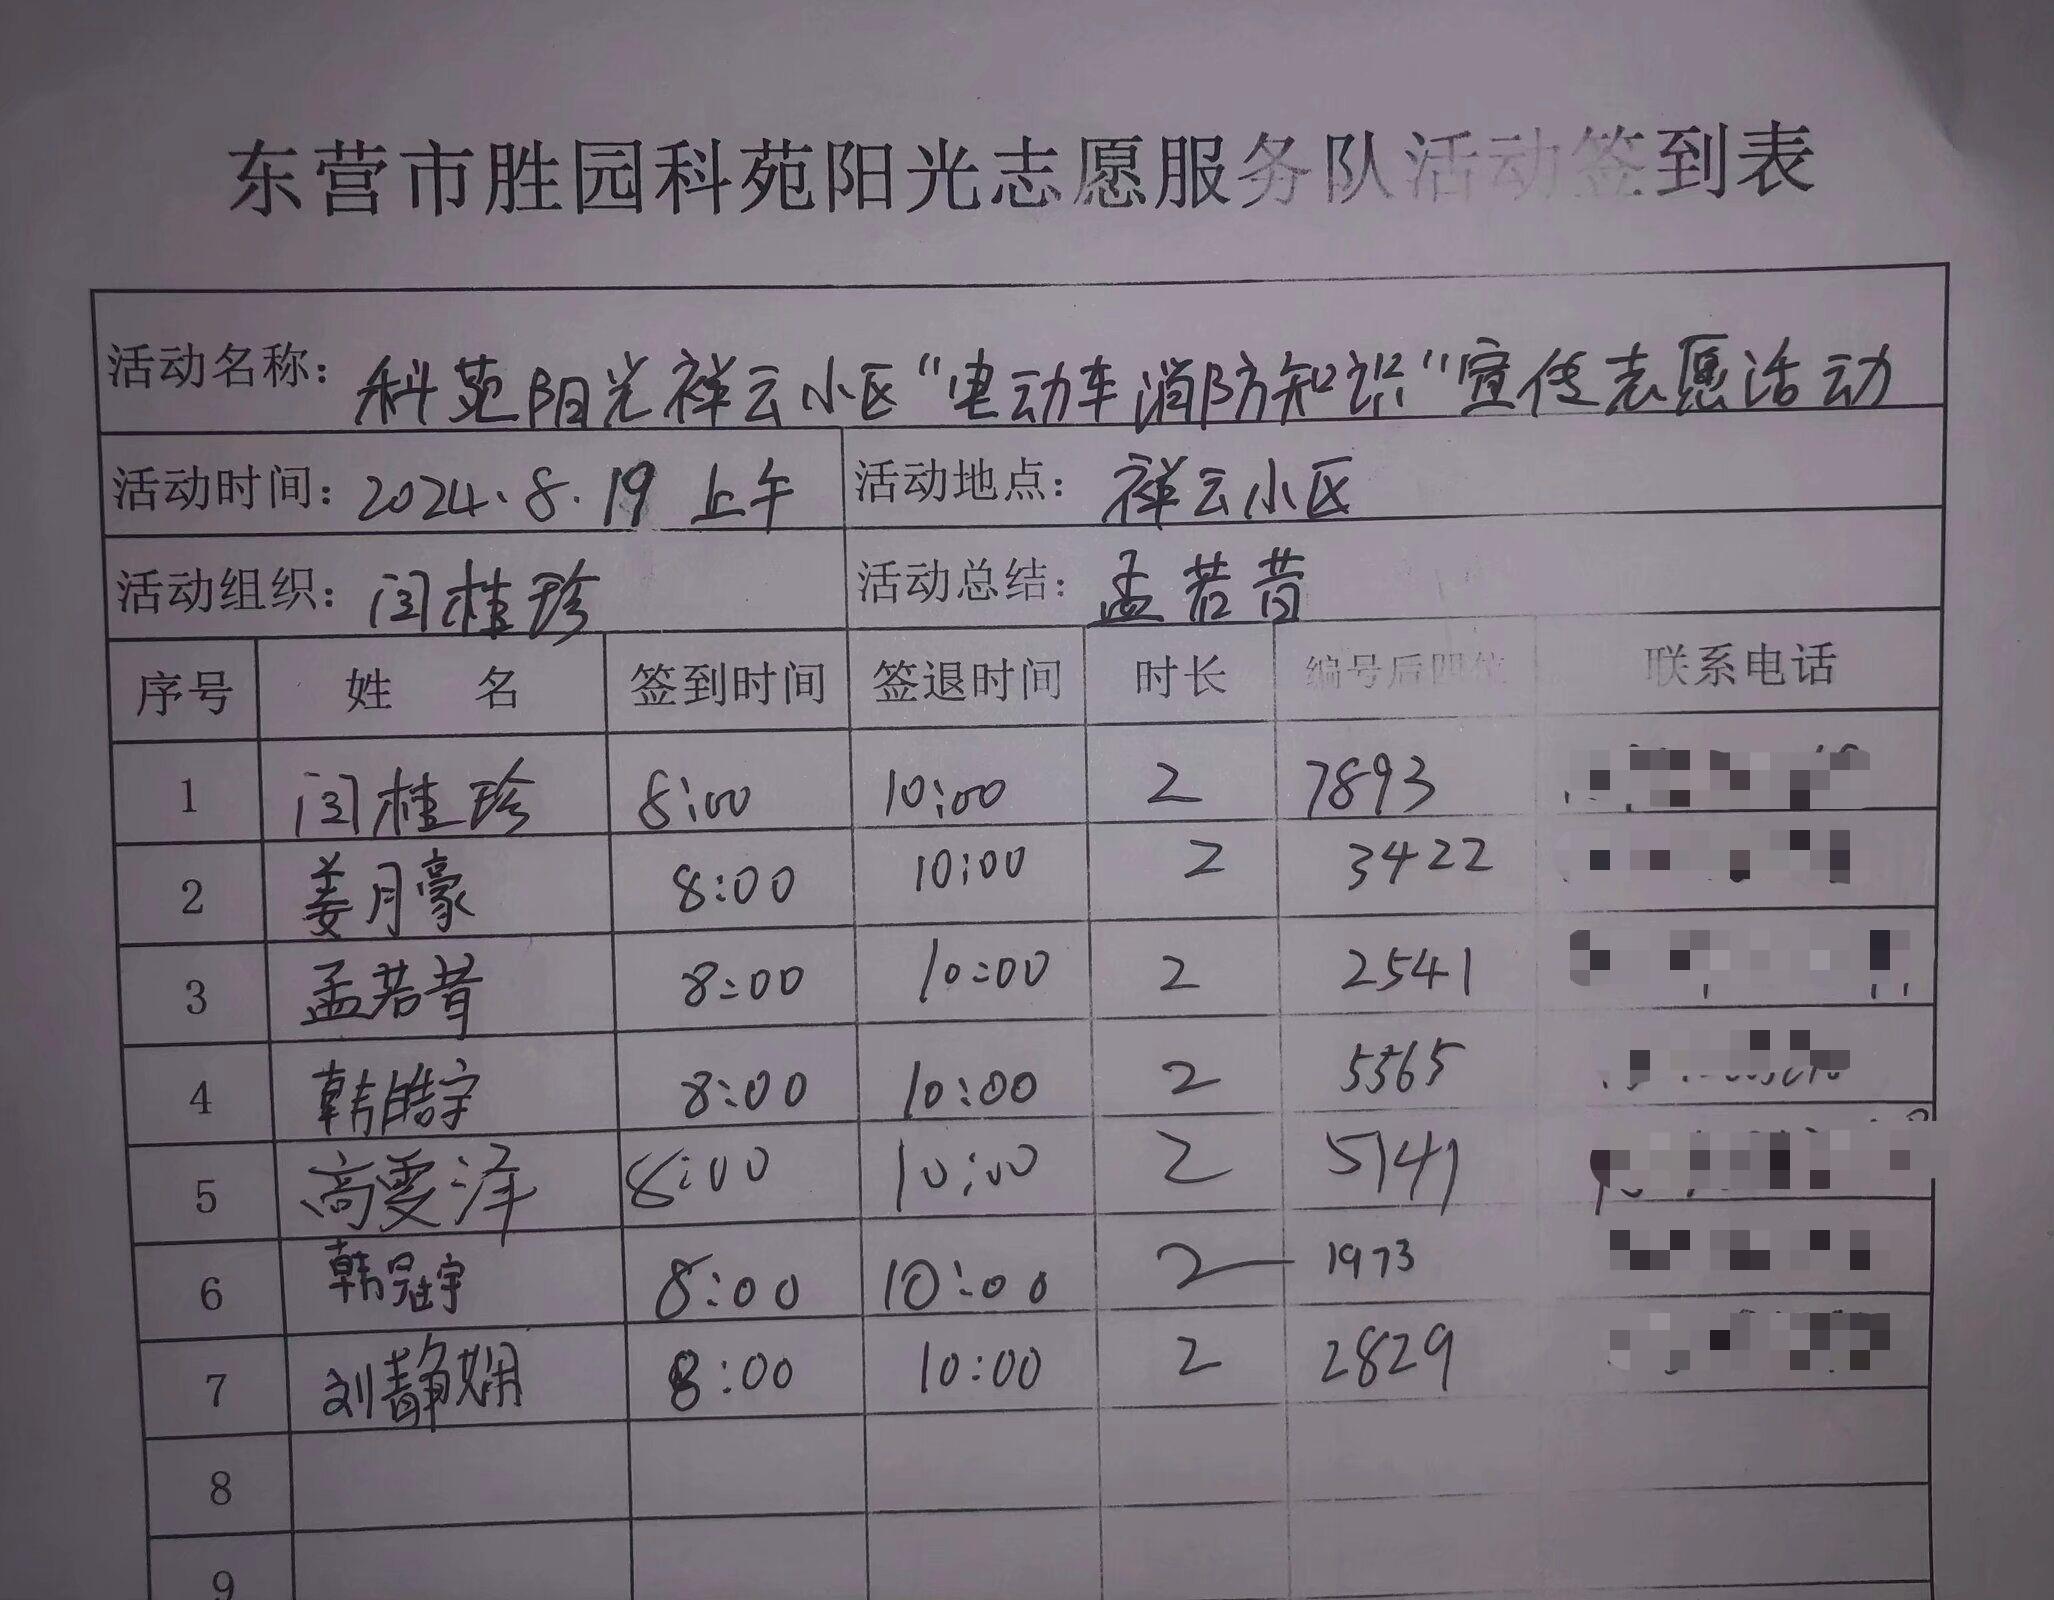 东营市胜园科苑阳光志愿服务队活动签到表
活动名称: 科苑阳光祥云小区“电动车消防知识”宣传志愿活动
活动时间: 2024.8.19 上午 活动地点: 祥云小区
活动组织: 闫桂珍 活动总结: 孟若昔
序号 姓 名 签到时间 签退时间 时长 编号后四位 联系电话
1 闫桂珍 8:00 10:00 2 7893
2 姜月豪 8:00 10:00 2 3422
3 孟若昔 8:00 10:00 2 2541
4 韩皓宇 8:00 10:00 2 5565
5 高雯泽 8:00 10:00 2 5141
6 韩冠宇 8:00 10:00 2 1973
7 刘静娴 8:00 10:00 2 2829
8
9